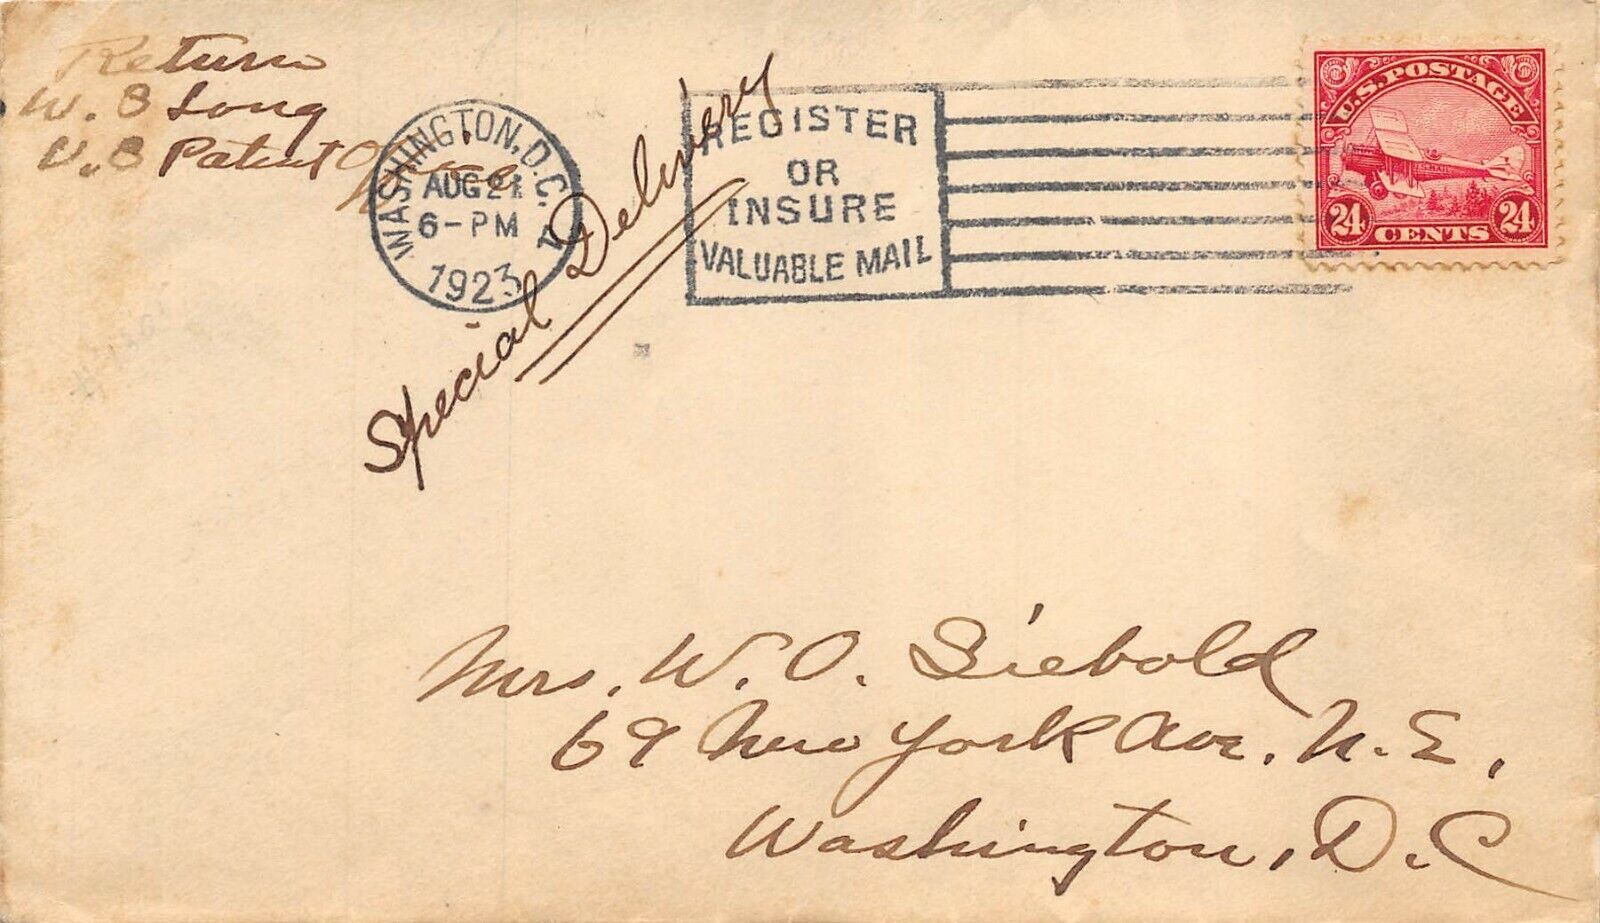 Return
W. S Long
U.S Patent Office
WASHINGTON, D.C.
AUG 21
6-PM
1923
Special Delivery
REGISTER
OR
INSURE
VALUABLE MAIL
U.S. POSTAGE
24 CENTS 24
Mrs. W. O. Siebold
69 New York Ave. N.E.,
Washington, D.C